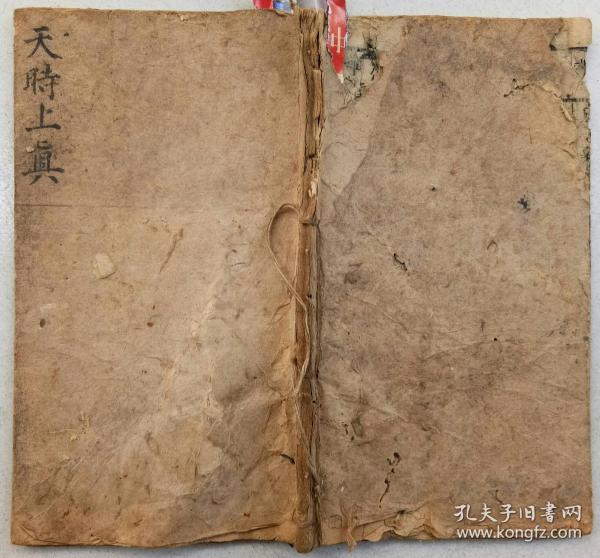 天時上真
中
孔夫子旧書网
www.kongfz.com